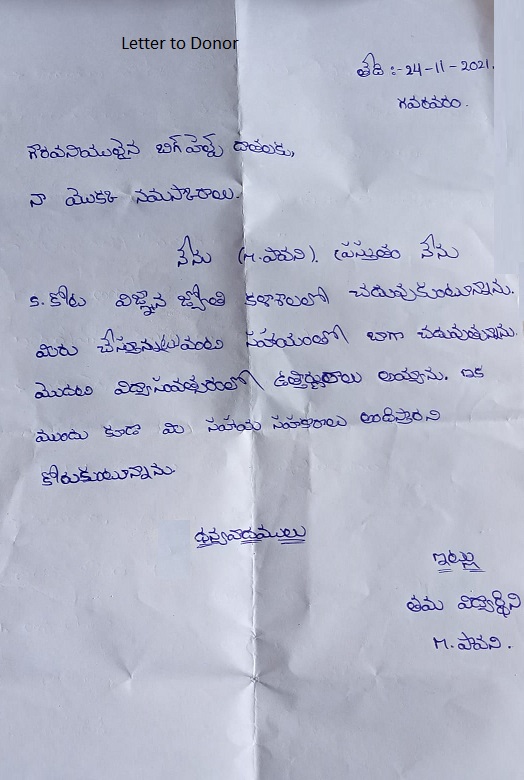 Letter to Donor
తేది :- 24-11-2021.
గవరవరం.
గౌరవనియులైన బిగ్‌హెల్ప్ దాతలకు,
నా యొక్క నమస్కారాలు.
నేను (M. పావని). ప్రస్తుతం నేను
S. కోట విజ్ఞాన జ్యోతి కళాశాలలో చదువుకుంటున్నాను.
మిరు చేస్తున్నటువంటి సహాయంతో బాగా చదువుతున్నాను.
మొదటి విద్యాసంవత్సరంలో ఉత్తీర్ణురాలు అయ్యాను. ఇక
ముందు కూడా మి సహాయ సహకారాలు అందిస్తారని
కోరుకుంటున్నాను.
ధన్యవాదములు
ఇట్లు
తమ విద్యార్థిని
M. పావని.